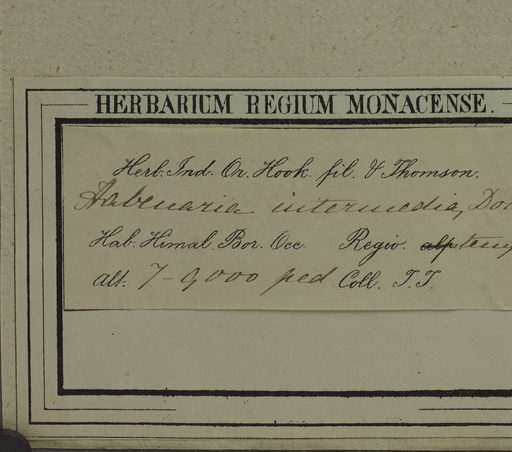 HERBARIUM REGIUM MONACENSE.
Herb. Ind. Or. Hook. fil. & Thomson.
Habenaria intermedia, Don
Hab. Himal. Bor. Occ. Regio. alp temp
Alt. 7-9,000 ped Coll. T.T.